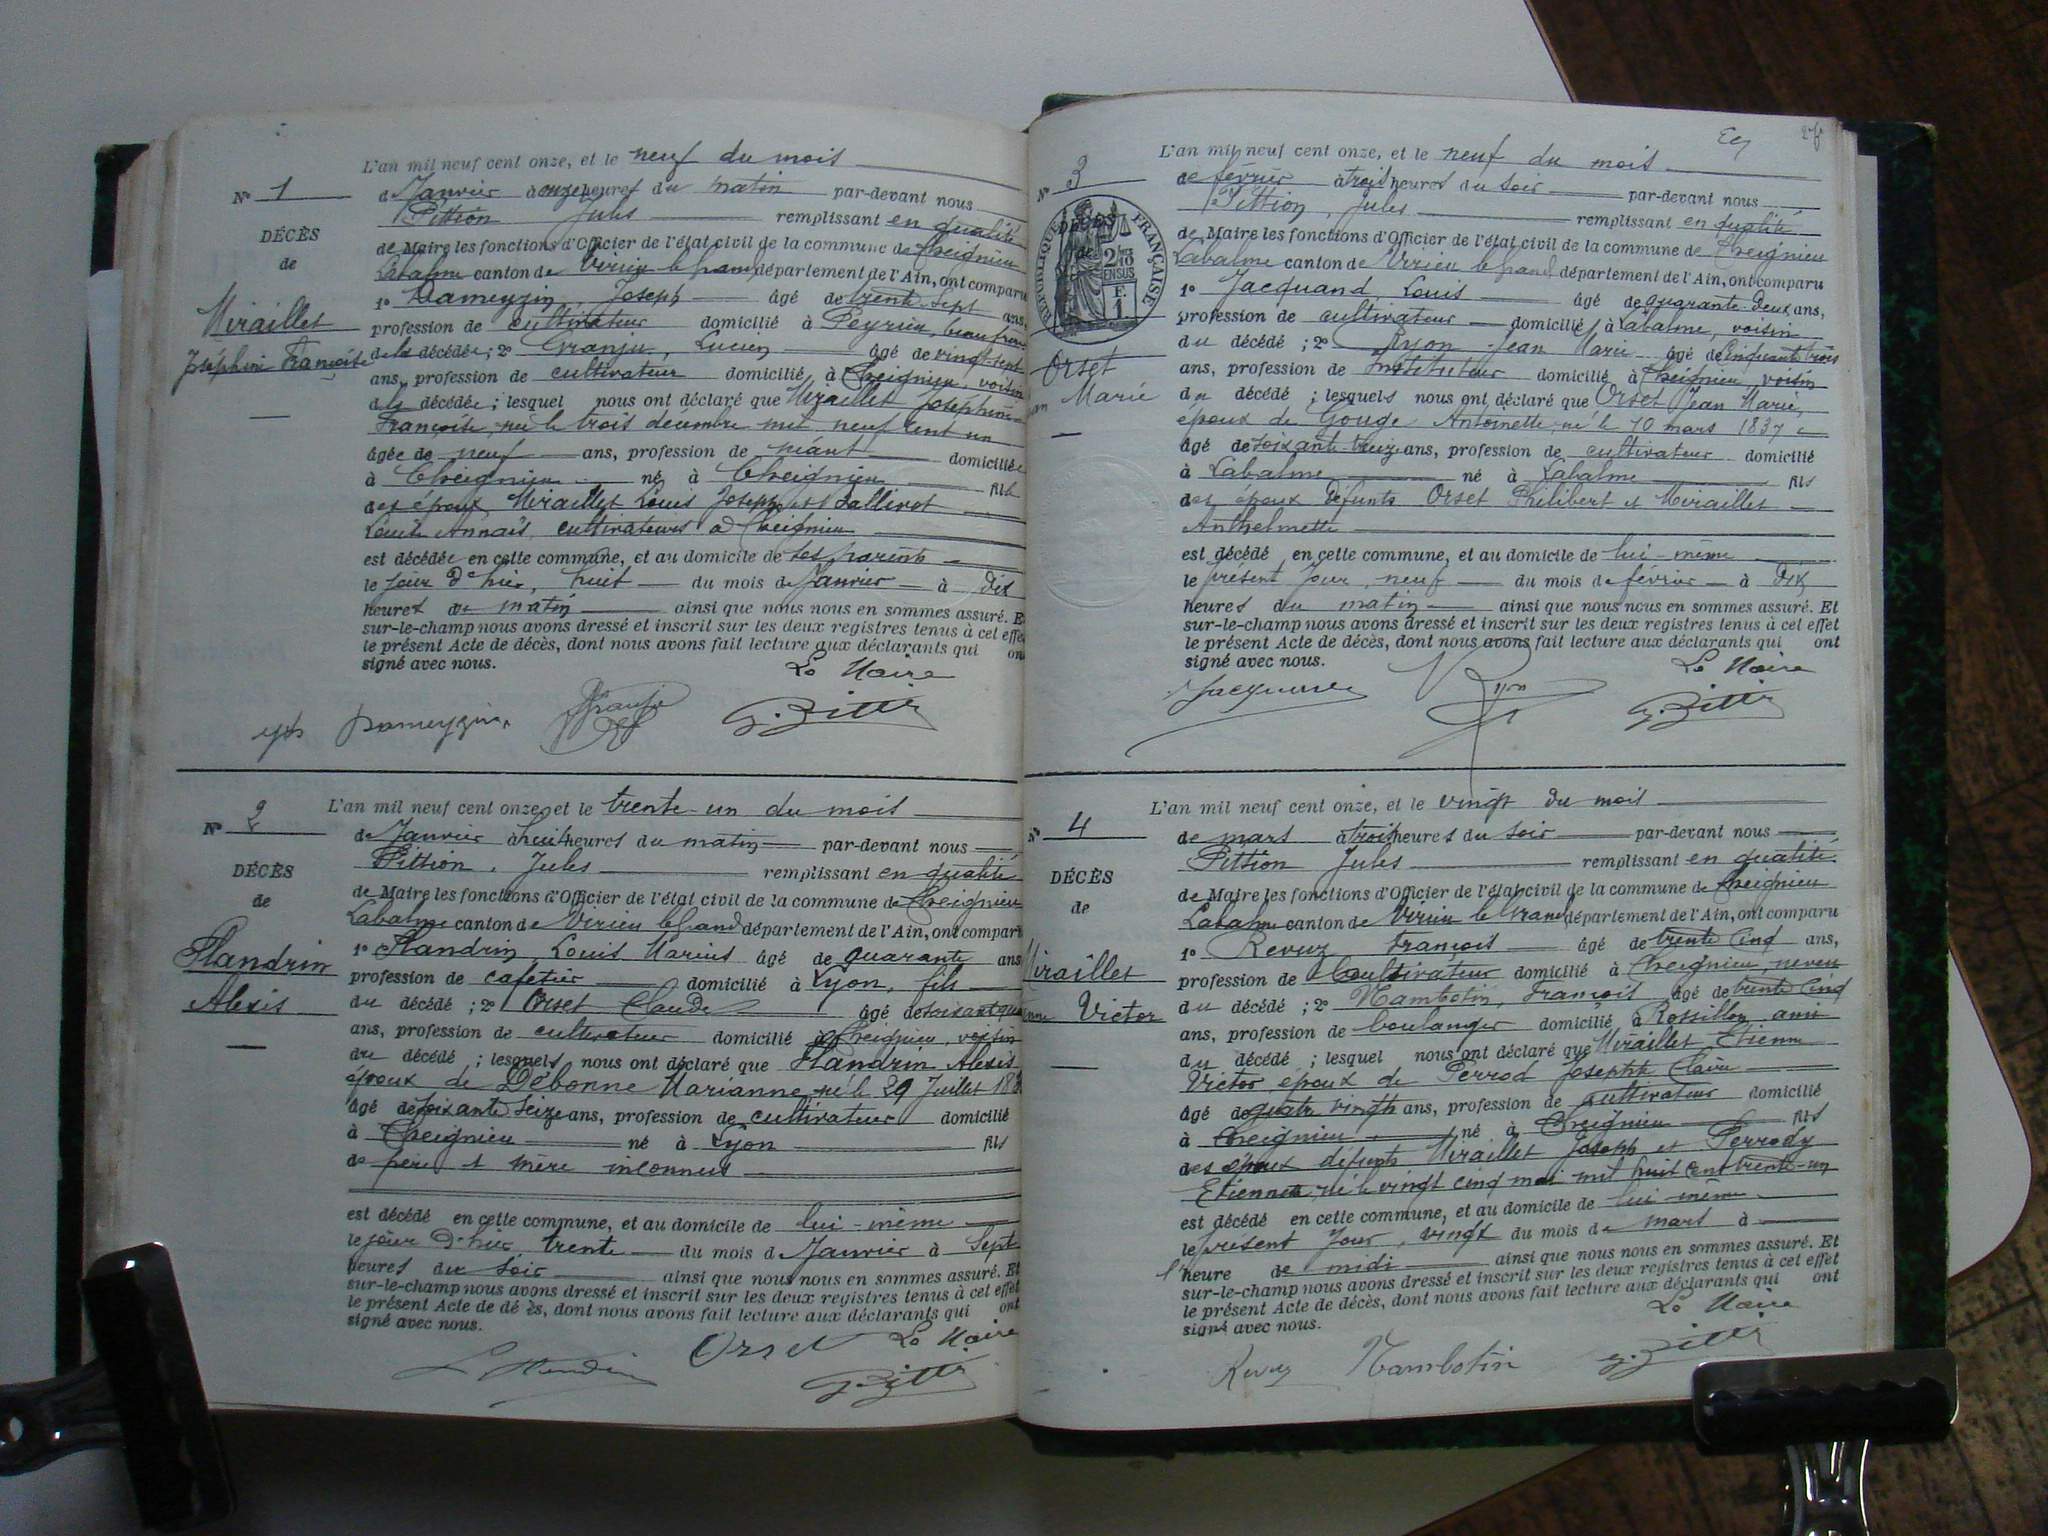 L'an mil neuf cent onze, et le neuf du mois
N° 1
de Janvier à onze heures du matin par-devant nous
Pittion Jules remplissant en qualité
DÉCÈS
de Maire les fonctions d'Officier de l'état civil de la commune de Cheignieu
de
Labalme canton de Virieu le Grand département de l'Ain, ont comparu
1° Dameyzin, Joseph âgé de trente sept ans,
Miraillet
profession de cultivateur domicilié à Peyrieu, beau frère
Joséphine Françoise
de la décédée; 2° Granju, Lucien âgé de vingt-sept
ans, profession de cultivateur domicilié à Cheignieu, voisin
de la décédée; lesquels nous ont déclaré que Miraillet Joséphine
Françoise, née le trois décembre mil neuf cent un
âgée de neuf ans, profession de néant domiciliée
à Cheignieu né à Cheignieu fille
des époux Miraillet Louis Joseph et
Louise Annaïs, cultivateurs à Cheignieu
est décédée en cette commune, et au domicile de ses parents
le jour d'hier, huit du mois de Janvier à dix
heures du matin ainsi que nous nous en sommes assuré. Et
sur-le-champ nous avons dressé et inscrit sur les deux registres tenus à cet effet
le présent Acte de décès, dont nous avons fait lecture aux déclarants qui ont
signé avec nous.
Le Maire
Dameyzin
Granju
J. Pittion
L'an mil neuf cent onze, et le trente-un du mois
N° 2
de Janvier à huit heures du matin par-devant nous
Pittion, Jules remplissant en qualité
DÉCÈS
de Maire les fonctions d'Officier de l'état civil de la commune de Cheignieu
de
Labalme canton de Virieu le Grand département de l'Ain, ont comparu
1° Flandrin Louis Marius âgé de quarante ans
Flandrin
profession de cafetier domicilié à Lyon, fils
Alexis
du décédé; 2° Orset Claude âgé de soixante quatre
ans, profession de cultivateur domicilié à Cheignieu, voisin
du décédé; lesquels nous ont déclaré que Flandrin Alexis
époux de Débonne Marianne, né le 29 Juillet
âgé de soixante seize ans, profession de cultivateur domicilié
à Cheignieu né à Lyon fils
de père et mère inconnus
est décédé en cette commune, et au domicile de lui-même
le jour d'hier, trente du mois de Janvier à sept
heures du soir ainsi que nous nous en sommes assuré. Et
sur-le-champ nous avons dressé et inscrit sur les deux registres tenus à cet effet
le présent Acte de dé ès, dont nous avons fait lecture aux déclarants qui ont
signé avec nous.
Le Maire
L Flandrin
Orset
J. Pittion
L'an mil neuf cent onze, et le neuf du mois
N° 3
de février à trois heures du soir par-devant nous
Pittion, Jules remplissant en qualité
DÉCÈS
RÉPUBLIQUE FRANÇAISE
de Maire les fonctions d'Officier de l'état civil de la commune de Cheignieu
de
Labalme canton de Virieu le Grand département de l'Ain, ont comparu
1° Jacquand Louis âgé de quarante-deux ans,
profession de cultivateur domicilié à Labalme, voisin
Orset
du décédé; 2° Ryon Jean Marie âgé de cinquante trois
Marie
ans, profession de Instituteur domicilié à Cheignieu, voisin
du décédé; lesquels nous ont déclaré que Orset Jean Marie,
époux de Gouge Antoinette, né le 10 mars 1837
âgé de soixante treize ans, profession de cultivateur domicilié
à Labalme né à Labalme fils
des époux défunts Orset Philibert et Miraillet
Anthelmette
est décédé en cette commune, et au domicile de lui-même
le présent Jour, neuf du mois de février à dix
heures du matin ainsi que nous nous en sommes assuré. Et
sur-le-champ nous avons dressé et inscrit sur les deux registres tenus à cet effet
le présent Acte de décès, dont nous avons fait lecture aux déclarants qui ont
signé avec nous.
Le Maire
Jacquand
Ryon
J. Pittion
L'an mil neuf cent onze, et le vingt du mois
N° 4
de mars à trois heures du soir par-devant nous
Pittion Jules remplissant en qualité
DÉCÈS
de Maire les fonctions d'Officier de l'état civil de la commune de Cheignieu
de
Labalme canton de Virieu le Grand département de l'Ain, ont comparu
1° Revuz françois âgé de trente cinq ans,
Miraillet
profession de cultivateur domicilié à Cheignieu, neveu
Victor
du décédé; 2° Mambotin, François âgé de trente cinq
ans, profession de boulanger domicilié à Rossillon, ami
du décédé; lesquel nous ont déclaré que Miraillet, Etienne
Victor, époux de Perrod Josephte Claire
âgé de quatre vingts ans, profession de cultivateur domicilié
à Cheignieu né à Cheignieu fils
des époux défunts Miraillet Joseph et Perrody
Etiennette, né le vingt cinq mai mil huit cent trente-un
est décédé en cette commune, et au domicile de lui même
le présent Jour, vingt du mois de mars à
l'heure de midi ainsi que nous nous en sommes assuré. Et
sur-le-champ nous avons dressé et inscrit sur les deux registres tenus à cet effet
le présent Acte de décès, dont nous avons fait lecture aux déclarants qui ont
signé avec nous.
Le Maire
Revuz
Mambotin
J. Pittion